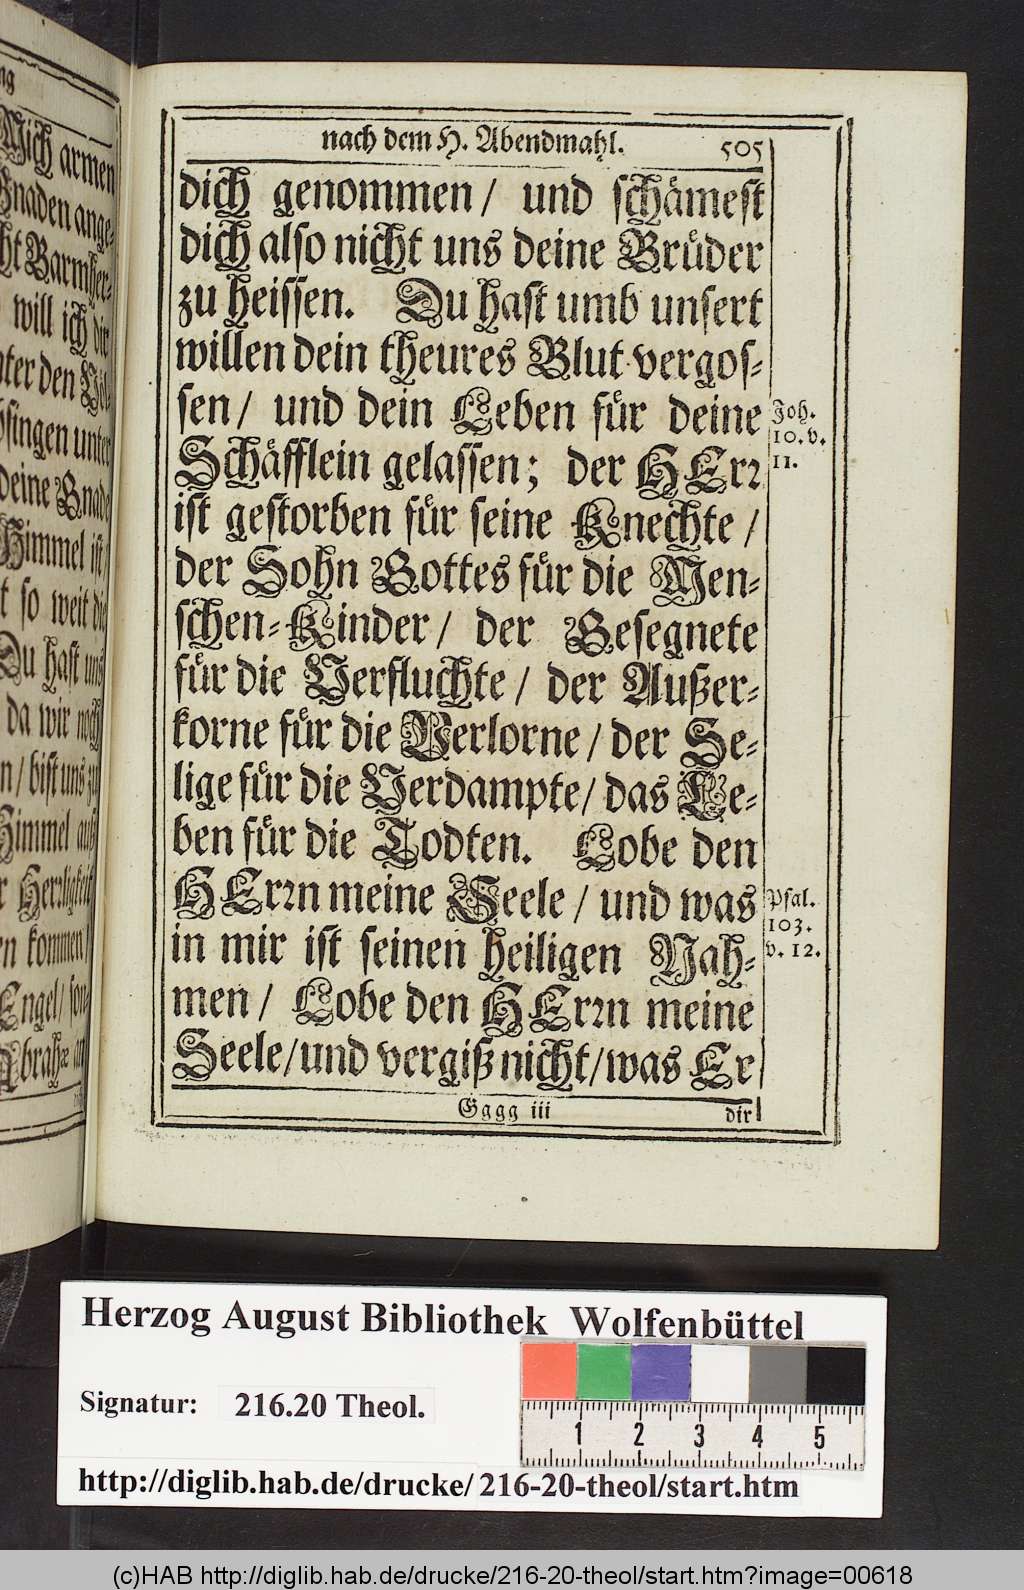 ng
Mich armen
Gnaden ange-
cht Barmher-
will ich dir
nter den Völ-
bsingen unter
deine Gnade
Himmel ist/
t so weit die
Du hast uns
da wir noch
n/ bist uns zu
Himmel auß
r Herꝛligkeit
en kommen/
Engel/ son-
Abrahæ an
nach dem H. Abendmahl. 505
dich genommen / und schämest
dich also nicht uns deine Brüder
zu heissen. Du hast umb unsert
willen dein theures Blut vergos-
sen / und dein Leben für deine
Schäfflein gelassen; der HErꝛ
ist gestorben für seine Knechte /
der Sohn Gottes für die Men-
schen-Kinder / der Gesegnete
für die Verfluchte / der Außer-
korne für die Verlorne / der Se-
lige für die Verdampte / das Le-
ben für die Todten. Lobe den
HErꝛn meine Seele / und was
in mir ist seinen heiligen Nah-
men / Lobe den HErꝛn meine
Seele/und vergiß nicht/was Er
Joh.
10. v.
11.
Psal.
103.
v. 12.
Gggg iii dir
Herzog August Bibliothek Wolfenbüttel
Signatur: 216.20 Theol.
1 2 3 4 5
http://diglib.hab.de/drucke/ 216-20-theol/start.htm
(c)HAB http://diglib.hab.de/drucke/216-20-theol/start.htm?image=00618